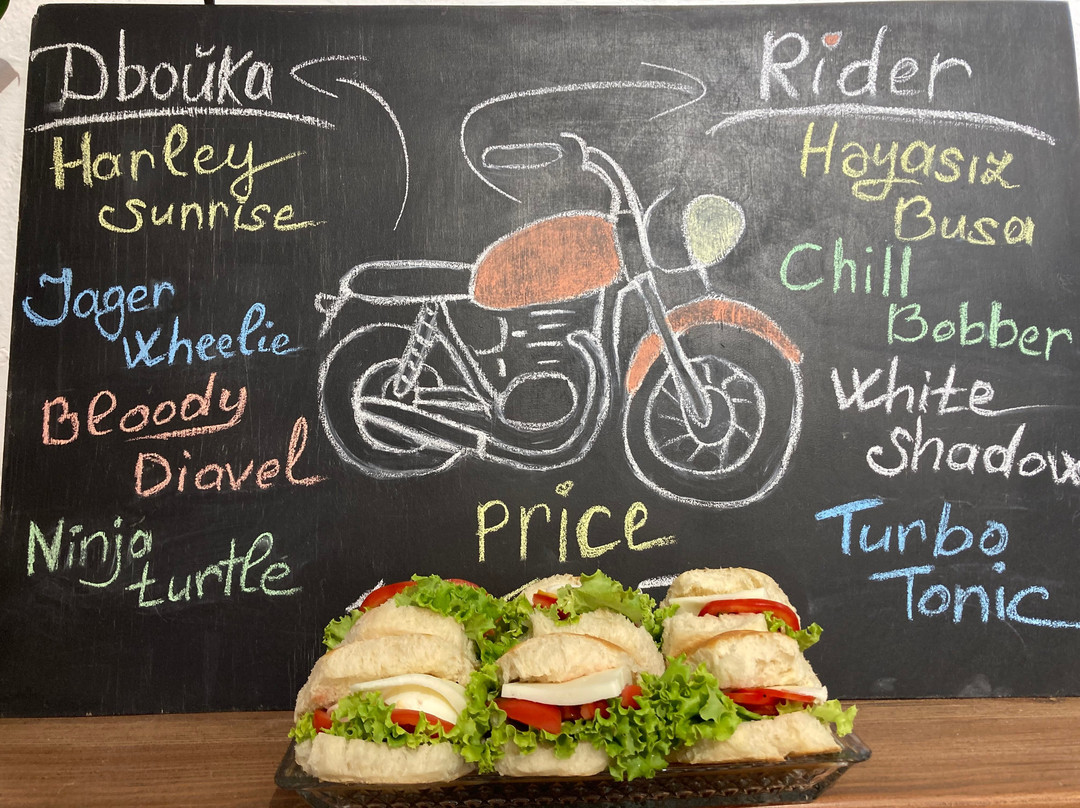 Двойка
Harley
sunrise
Jager
Wheelie
Bloody
Diavel
Ninja
turtle
Rider
Həyasız
Busa
Chill
Bobber
White
shadow
Turbo
Tonic
Price